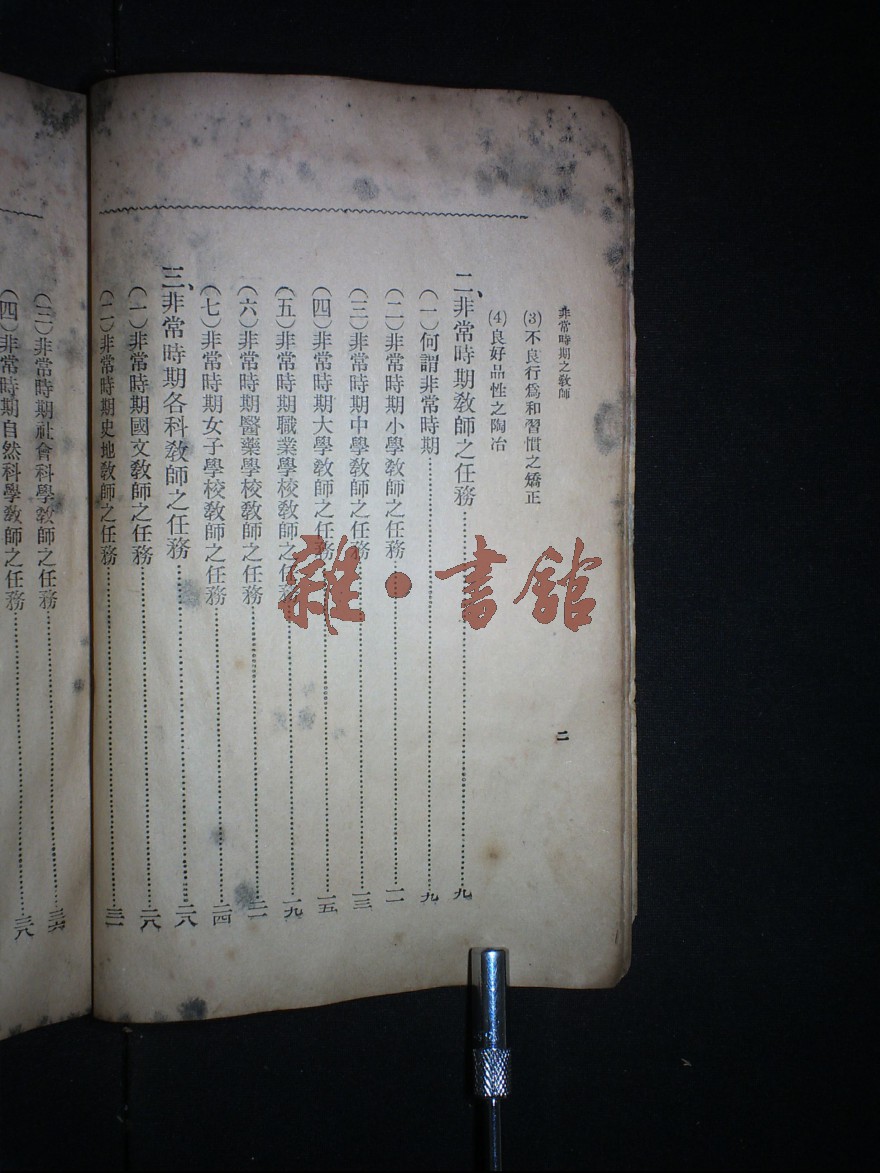 非常時期之教師
二
(3)不良行爲和習慣之矯正
(4)良好品性之陶冶
二、非常時期教師之任務……九
(一)何謂非常時期……九
(二)非常時期小學教師之任務……一一
(三)非常時期中學教師之任務……一三
(四)非常時期大學教師之任務……一五
(五)非常時期職業學校教師之任務……一九
(六)非常時期醫藥學校教師之任務……二一
(七)非常時期女子學校教師之任務……二四
三、非常時期各科教師之任務……二八
(一)非常時期國文教師之任務……二八
(二)非常時期史地教師之任務……三一
(三)非常時期社會科學教師之任務……三六
(四)非常時期自然科學教師之任務……三八
雜·書館